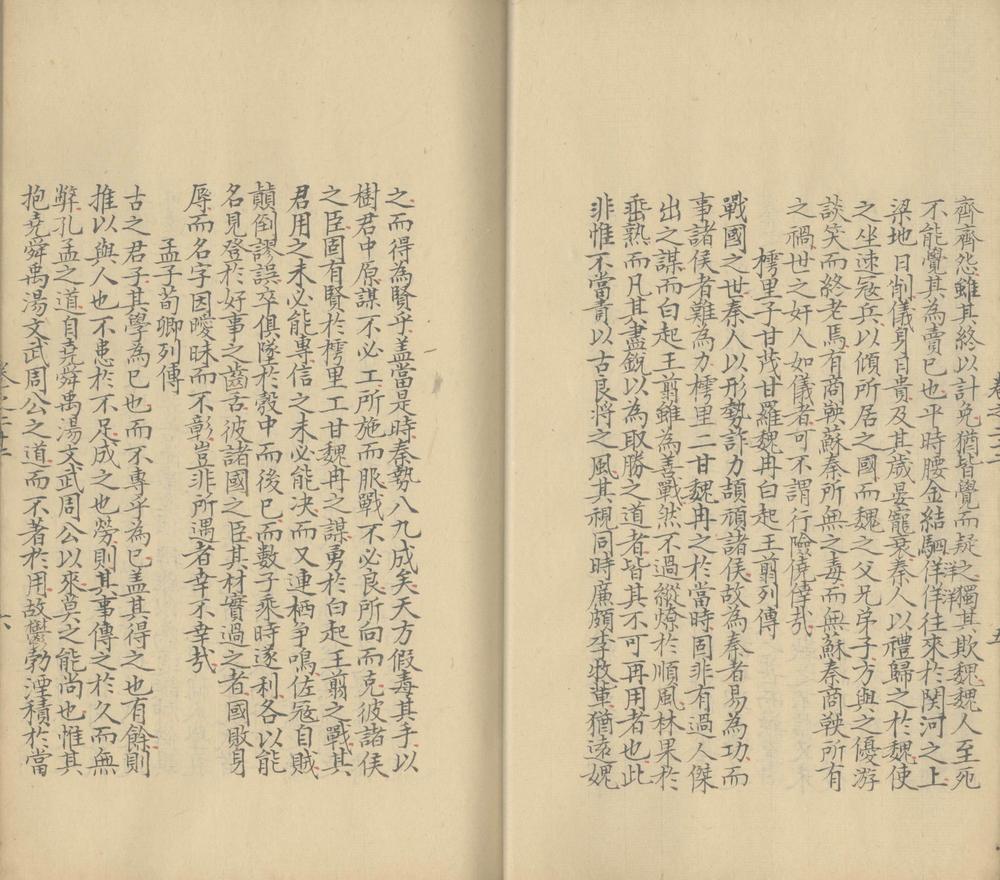 齊齊怨雖其終以計免猶皆覺而疑之獨其欺魏魏人至死
不能覺其為賣已也平時腰金結駟佯佯往來於関河之上
洋洋
梁地日削儀身日貴及其歲晏寵衰秦人以禮歸之於魏使
之坐速寇兵以傾所居之國而魏之父兄弟子方與之優游
談笑而終老焉有商鞅蘇秦所無之毒而無蘇秦商鞅所有
之禍世之奸人如儀者可不謂行險僥倖哉
樗里子甘茂甘羅魏冉白起王翦列傳
戰國之世秦人以形勢許力頡頏諸侯故為秦者易為功而
事諸侯者難為力樗里二甘魏冉之於當時固非有過人傑
出之謀而白起王翦雖為善戰然不過縱燎於順風林果於
垂熟而凡其盡銳以為取勝之道者皆其不可再用者也此
非惟不當責以古良將之風其視同時廉頗李牧軰猶遠媿
之而得為賢乎盖當是時秦勢八九成矣天方假毒其手以
樹君中原謀不必工所施而服戰不必良所向而克彼諸侯
之臣固有賢於樗里工甘魏冉之謀勇於白起王翦之戰其
君用之未必能專信之未必能决而又連栖争鳴佐寇自賊
顛倒謬誤卒俱墜於彀中而後已而數子乘時遂利各以能
名見登於好事之齒舌彼諸國之臣其材實過之者國敗身
辱而名字因曖昧而不彰豈非所遇者幸不幸哉
孟子荀卿列傳
古之君子其學為已也而不專乎為已盖其得之也有餘則
推以與人也不患於不足成之也勞則其事傳之於久而無
弊孔孟之道自堯舜禹湯文武周公以來莫之能尚也惟其
抱堯舜禹湯文武周公之道而不著於用故鬱勃湮積於當